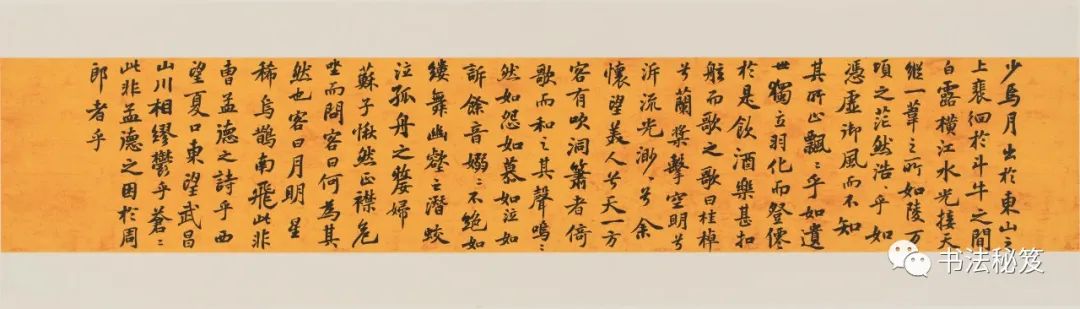 少焉月出於東山之
上裴徊於斗牛之間
白露橫江水光接天
縱一葦之所如陵万
頃之茫然浩〻乎如
憑虛御風而不知
其所止飄〻乎如遺
世獨立羽化而登僊
於是飲酒樂甚扣
舷而歌之歌曰桂棹
兮蘭槳擊空明兮
泝流光渺〻兮余
懷望美人兮天一方
客有吹洞簫者倚
歌而和之其聲嗚〻
然如怨如慕如泣如
訴餘音嫋〻不絕如
縷舞幽壑之潛蛟
泣孤舟之嫠婦
蘇子愀然正襟危
坐而問客曰何為其
然也客曰月明星
稀烏鵲南飛此非
曹孟德之詩乎西
望夏口東望武昌
山川相繆鬱乎蒼〻
此非孟德之困於周
郎者乎
书法秘笈